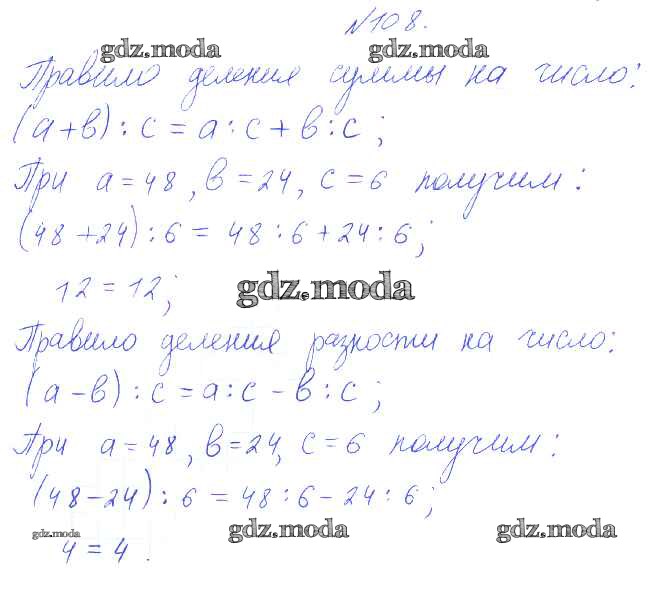 №108.
gdz.moda
Правило деления суммы на число:
(а+в) : с = а : с + в : с ;
При а = 48 , в = 24 , с = 6 получим :
(48 + 24) : 6 = 48 : 6 + 24 : 6 ;
12 = 12 ; gdz.moda
Правило деления разности на число:
(а - в) : с = а : с - в : с ;
При а = 48 , в = 24, с = 6 получим :
(48 - 24) : 6 = 48 : 6 - 24 : 6 ;
gdz.moda gdz.moda gdz.moda
4 = 4 .